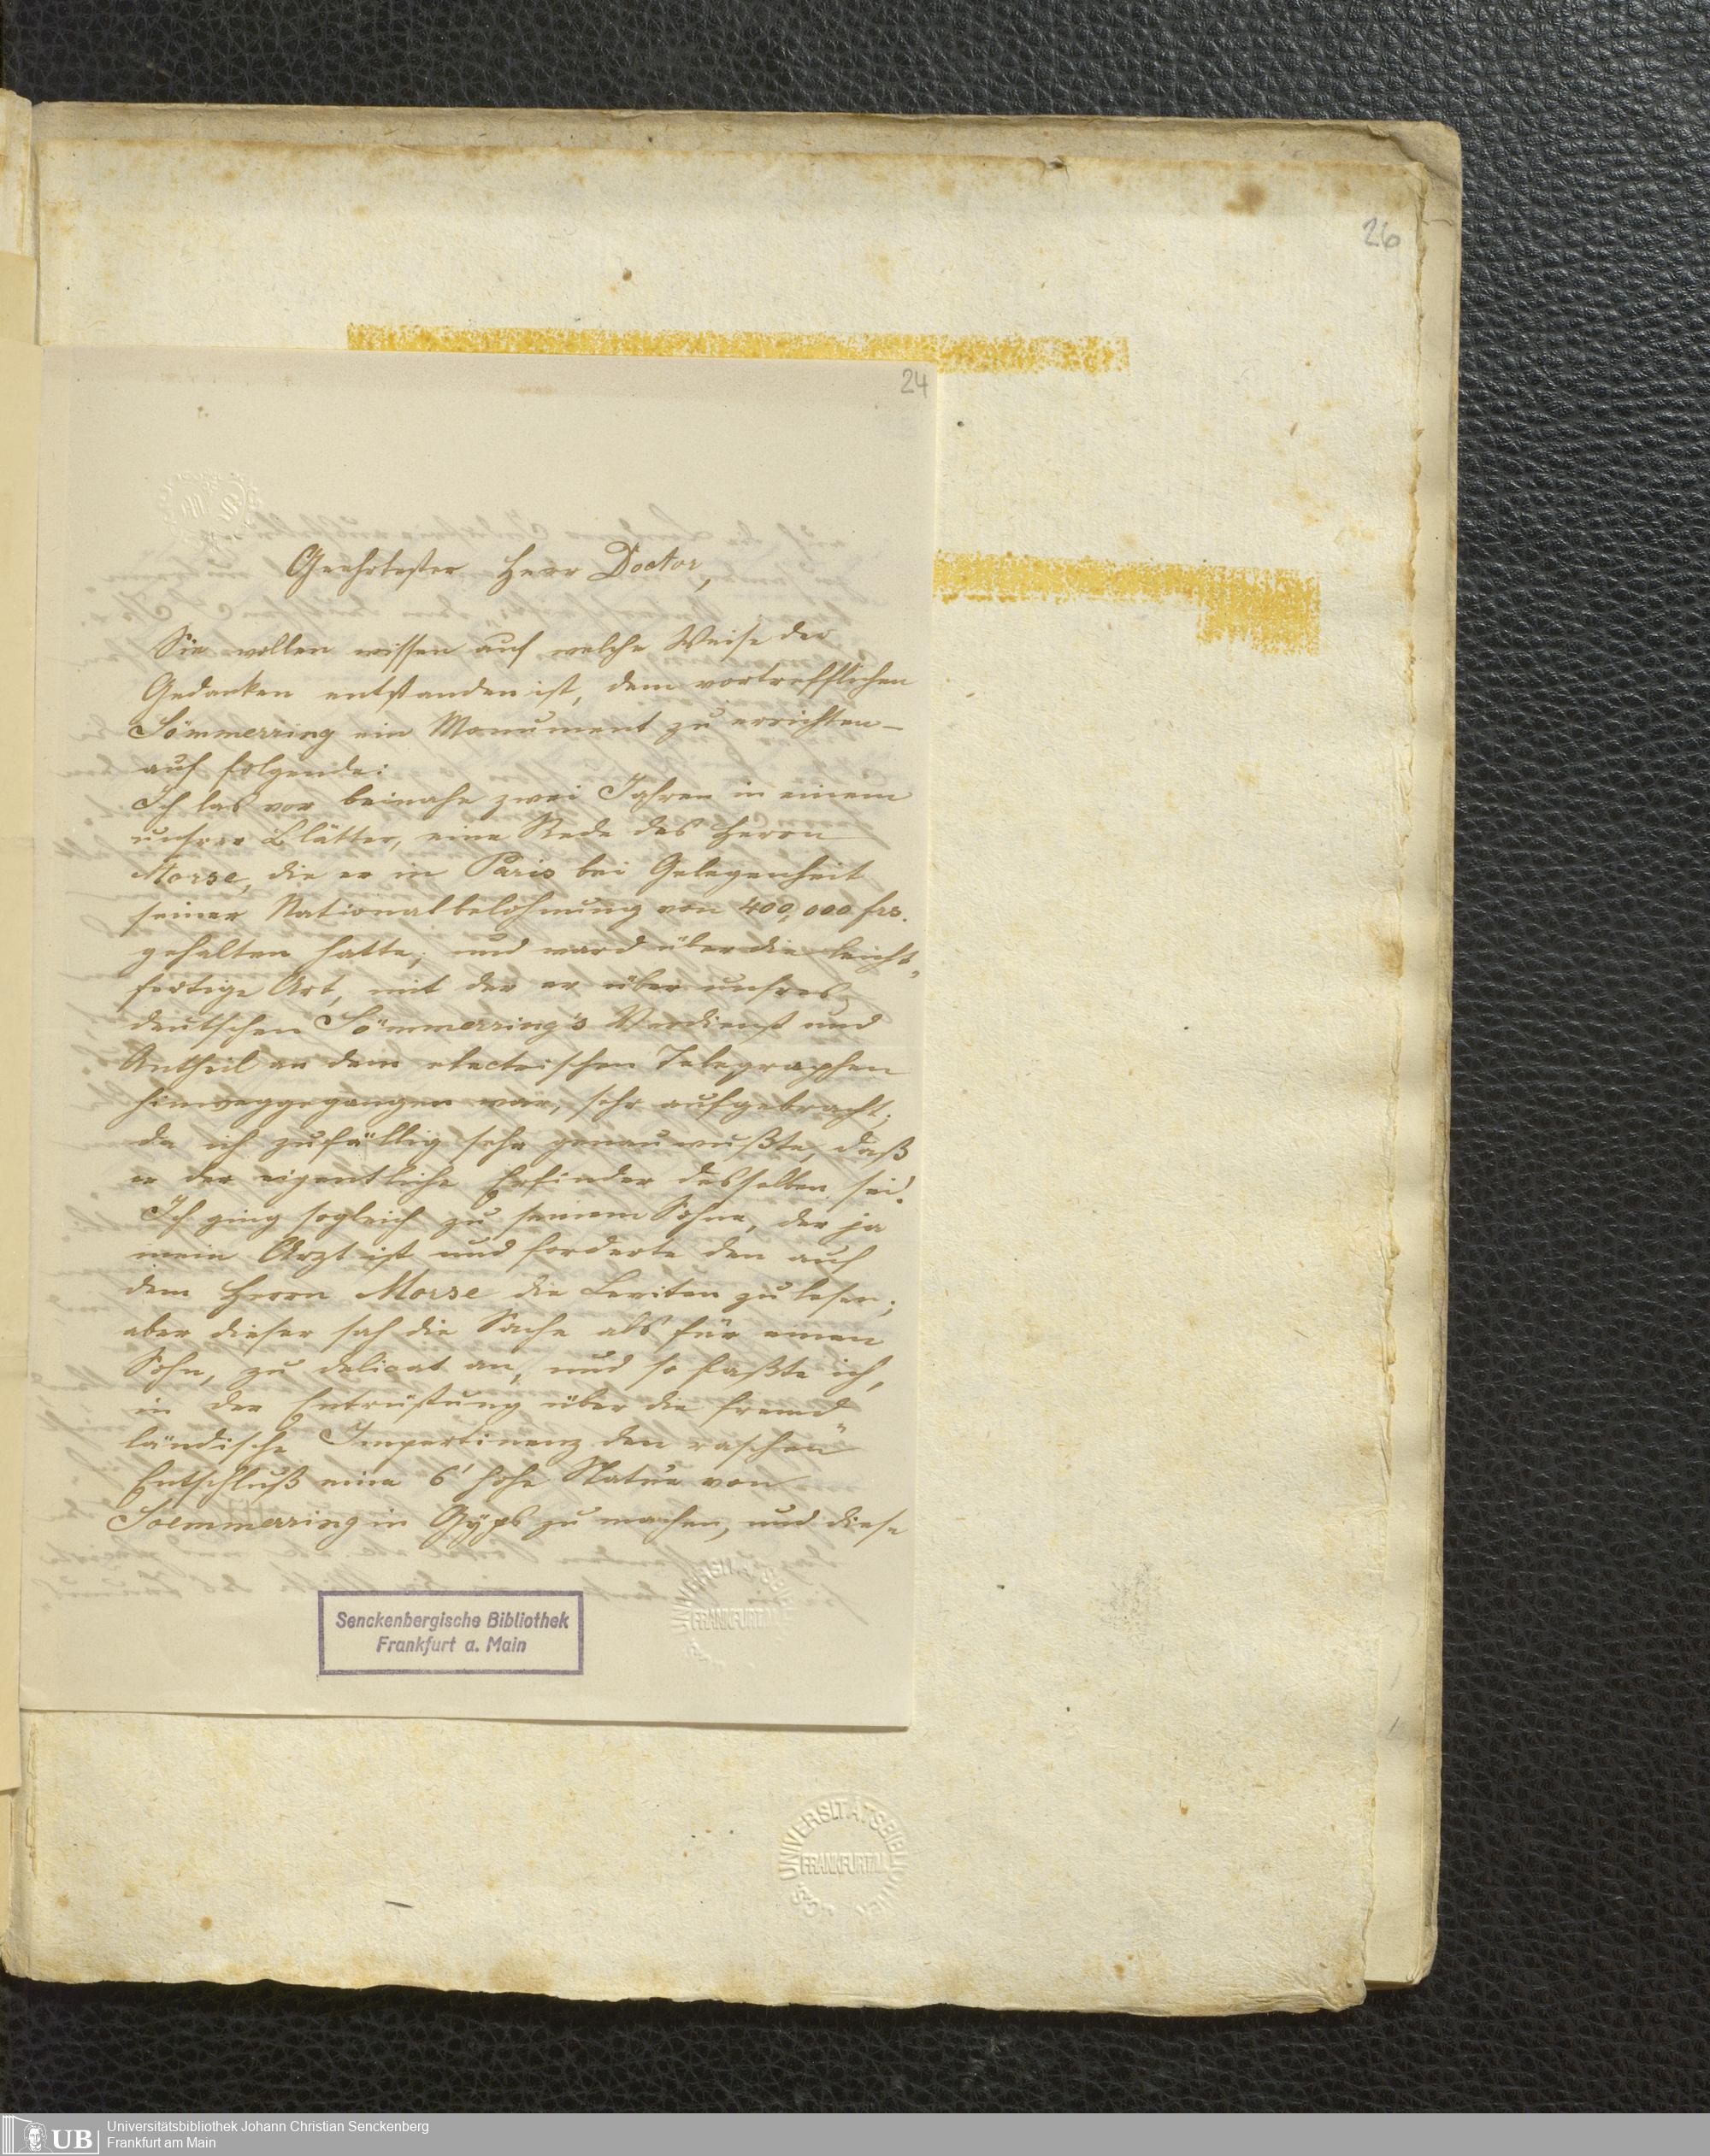 26
24
Geehrtester Herr Doctor,
Sie wollen wissen auf welche Weise der
Gedanken entstanden ist, dem vortrefflichen
Sömmerring ein Monument zu errichten –
auf folgende:
Ich las vor beinahe zwei Jahren in einem
unsrer Blätter, eine Rede des Herrn
Morse, die er in Paris bei Gelegenheit
seiner Nationalbelohnung von 400,000 frs.
gehalten hatte, und ward über die leicht-
fertige Art, mit der er über unsres
deutschen Sömmerring's Verdienst und
Antheil an dem electrischen Telegraphen
hinweggegangen war, sehr aufgebracht;
da ich zufällig sehr genau wußte, daß
er der eigentliche Erfinder desselben sei.
Ich ging sogleich zu seinem Sohne, der ja
mein Arzt ist und forderte den auf
dem Herrn Morse die Leviten zu lesen;
aber dieser sah die Sache als für einen
Sohn, zu delicat an, und so faßte ich,
in der Entrüstung über die fremd
ländische Impertinenz den raschen
Entschluß eine 6' hohe Statue von
Soemmerring in Gyps zu machen, und diese
Senckenbergische Bibliothek
Frankfurt a. Main
UNIVERSITÄTSBIBLIOTHEK
FRANKFURT/M.
UB
Universitätsbibliothek Johann Christian Senckenberg
Frankfurt am Main